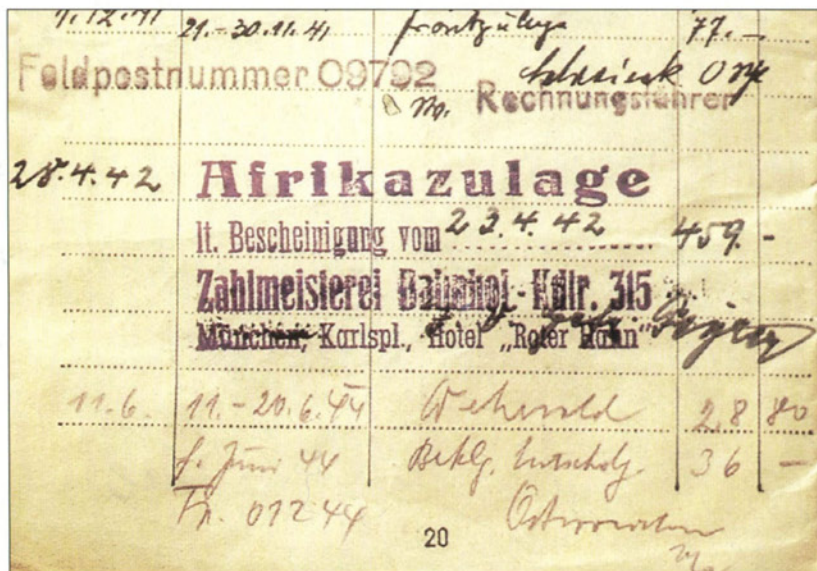 1.12.41 21.-30.11.41 Frontzulage 77.-
Feldpostnummer 09792
Rechnungsführer
28.4.42 Afrikazulage
lt. Bescheinigung vom 23.4.42 459.-
Zahlmeisterei Bahnhof-Kdtr. 315
München, Karlspl., Hotel „Roter Hahn“
11.6. 11.-20.6.44 Wehrsold 28 80
f. Juni 44 Beklg. Entschdg. 36 -
Fp. 01244
20